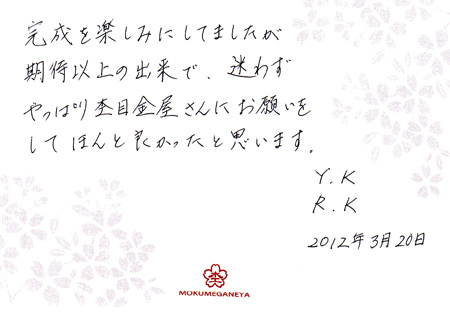 完成を楽しみにしてましたが
期待以上の出来で、迷わず
やっぱり杢目金屋さんにお願いを
してほんと良かったと思います。
Y.K
R.K
2012年3月20日
MOKUMEGANEYA